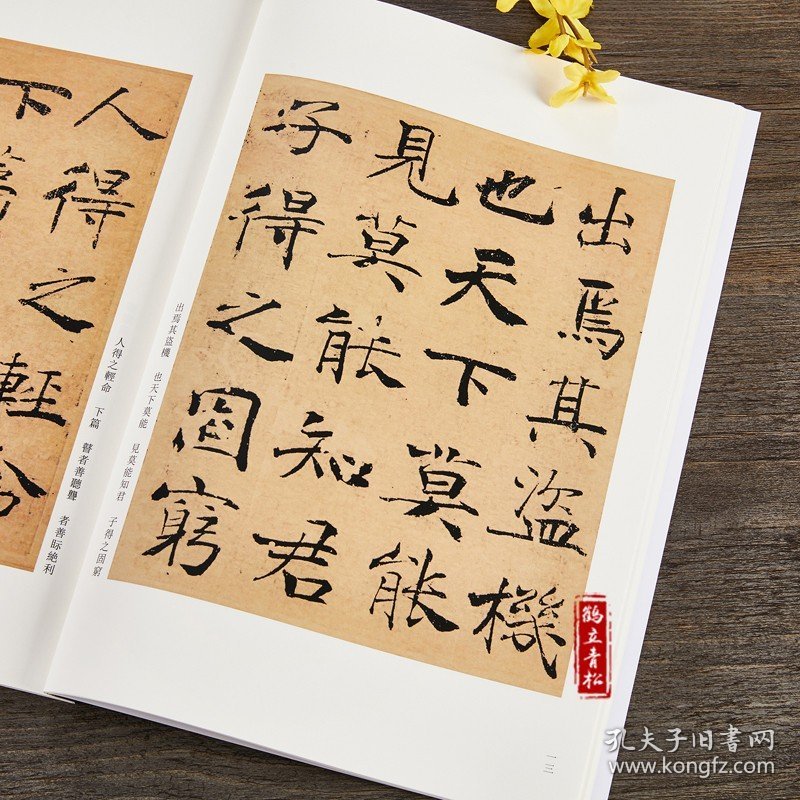 出焉其盜機
也天下莫能
見莫能知君
子得之固窮
出焉其盜機　也天下莫能　見莫能知君　子得之固窮
人得之輕命　下篇　瞽者善聽聾　者善眎絶利
人得之輕命
下
一三
鶴立青松
孔夫子旧書网
www.kongfz.com